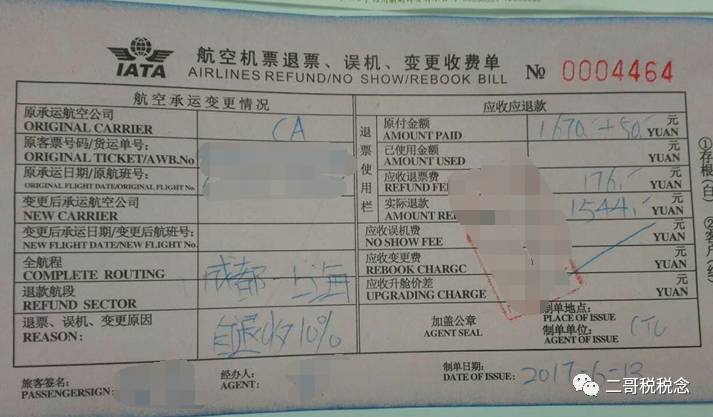 IATA
航空机票退票、误机、变更收费单
AIRLINES REFUND/NO SHOW/REBOOK BILL
№ 0004464
航空承运变更情况
原承运航空公司
ORIGINAL CARRIER
CA
原客票号码/货运单号:
ORIGINAL TICKET/AWB.No
原承运日期/原航班号:
ORIGINAL FLIGHT DATE/ORIGINAL FLIGHT No.
变更后承运航空公司
NEW CARRIER
变更后承运日期/变更后航班号:
NEW FLIGHT DATE/NEW FLIGHT No.
全航程
COMPLETE ROUTING
成都-上海
退款航段
REFUND SECTOR
退票、误机、变更原因
REASON:
自退收10%
应收应退款
退票使用栏
原付金额
AMOUNT PAID
1670.-+50.-
元
YUAN
已使用金额
AMOUNT USED
元
YUAN
应收退票费
REFUND FEE
176.-
元
YUAN
实际退款
AMOUNT RE
1544.-
元
YUAN
应收误机费
NO SHOW FEE
元
YUAN
应收变更费
REBOOK CHARGC
元
YUAN
应收升舱价差
UPGRADING CHARGE
元
YUAN
加盖公章
AGENT SEAL
制单地点:
PLACE OF ISSUE
制单单位:
AGENT OF ISSUE
CTU
①存根(白)
②客户(红)
旅客签名:
PASSENGERSIGN:
经办人:
AGENT
制单日期:
DATE OF ISSUE:
2017-6-13
二哥税税念